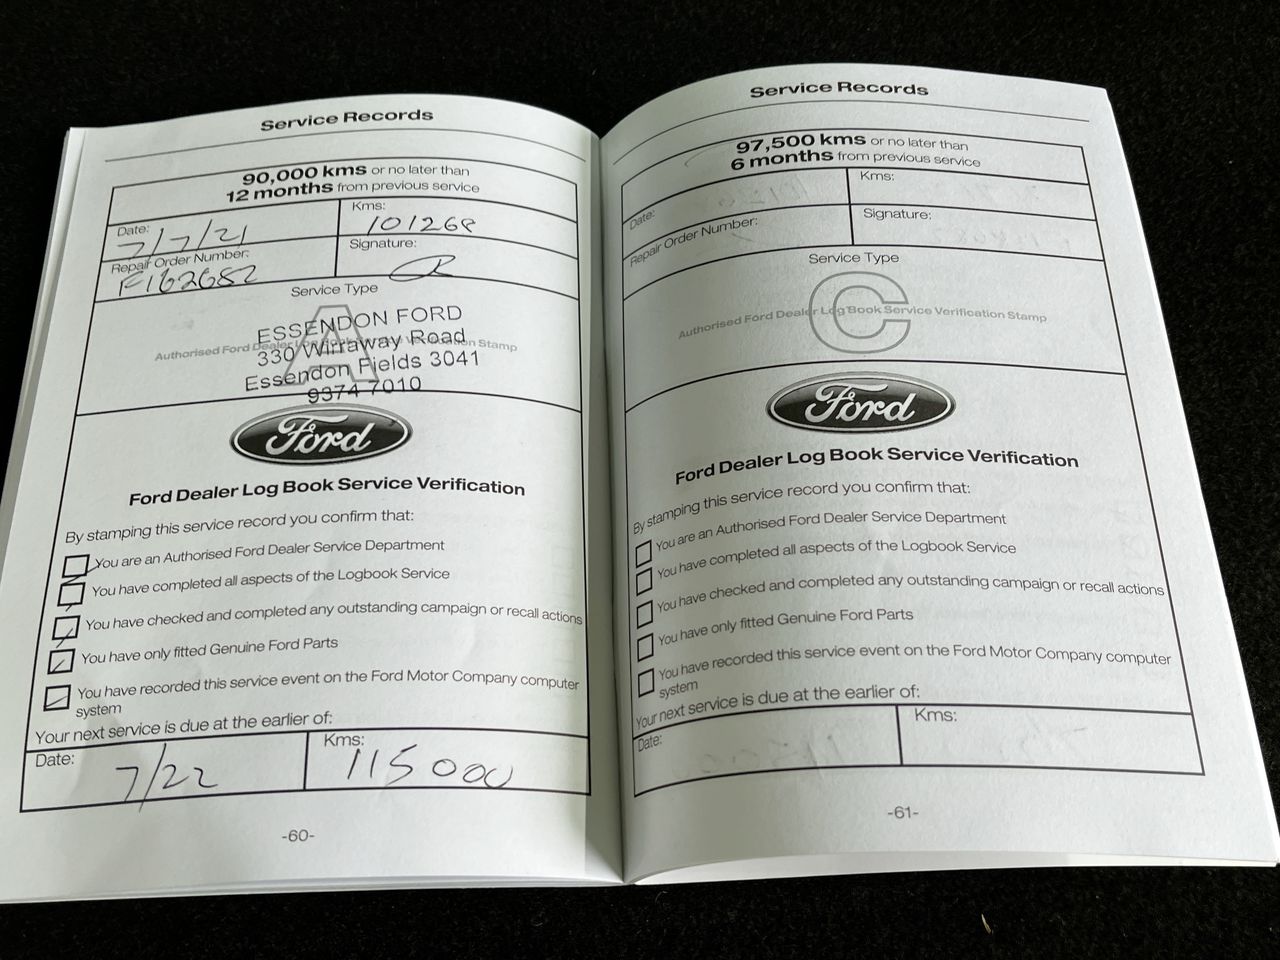 Service Records
90,000 kms or no later than
12 months from previous service
Date:
7/7/21
Kms:
101268
Repair Order Number:
F162682
Signature:
Service Type
A
Authorised Ford Dealer Log Book Service Verification Stamp
ESSENDON FORD
330 Wirraway Road
Essendon Fields 3041
9374 7010
Ford
Ford Dealer Log Book Service Verification
By stamping this service record you confirm that:
You are an Authorised Ford Dealer Service Department
You have completed all aspects of the Logbook Service
You have checked and completed any outstanding campaign or recall actions
You have only fitted Genuine Ford Parts
You have recorded this service event on the Ford Motor Company computer
system
Your next service is due at the earlier of:
Date:
7/22
Kms:
115000
-60-
Service Records
97,500 kms or no later than
6 months from previous service
Date:
Kms:
Repair Order Number:
Signature:
Service Type
C
Authorised Ford Dealer Log Book Service Verification Stamp
Ford
Ford Dealer Log Book Service Verification
By stamping this service record you confirm that:
You are an Authorised Ford Dealer Service Department
You have completed all aspects of the Logbook Service
You have checked and completed any outstanding campaign or recall actions
You have only fitted Genuine Ford Parts
You have recorded this service event on the Ford Motor Company computer
system
Your next service is due at the earlier of:
Date:
Kms:
-61-